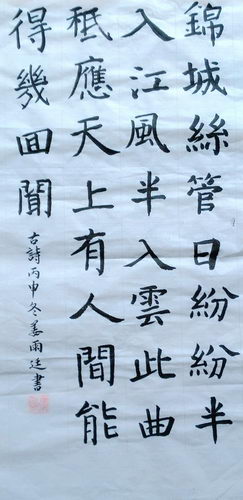 錦城絲管日紛紛半
入江風半入雲此曲
秖應天上有人間能
得幾回聞
古詩丙申冬姜雨廷書